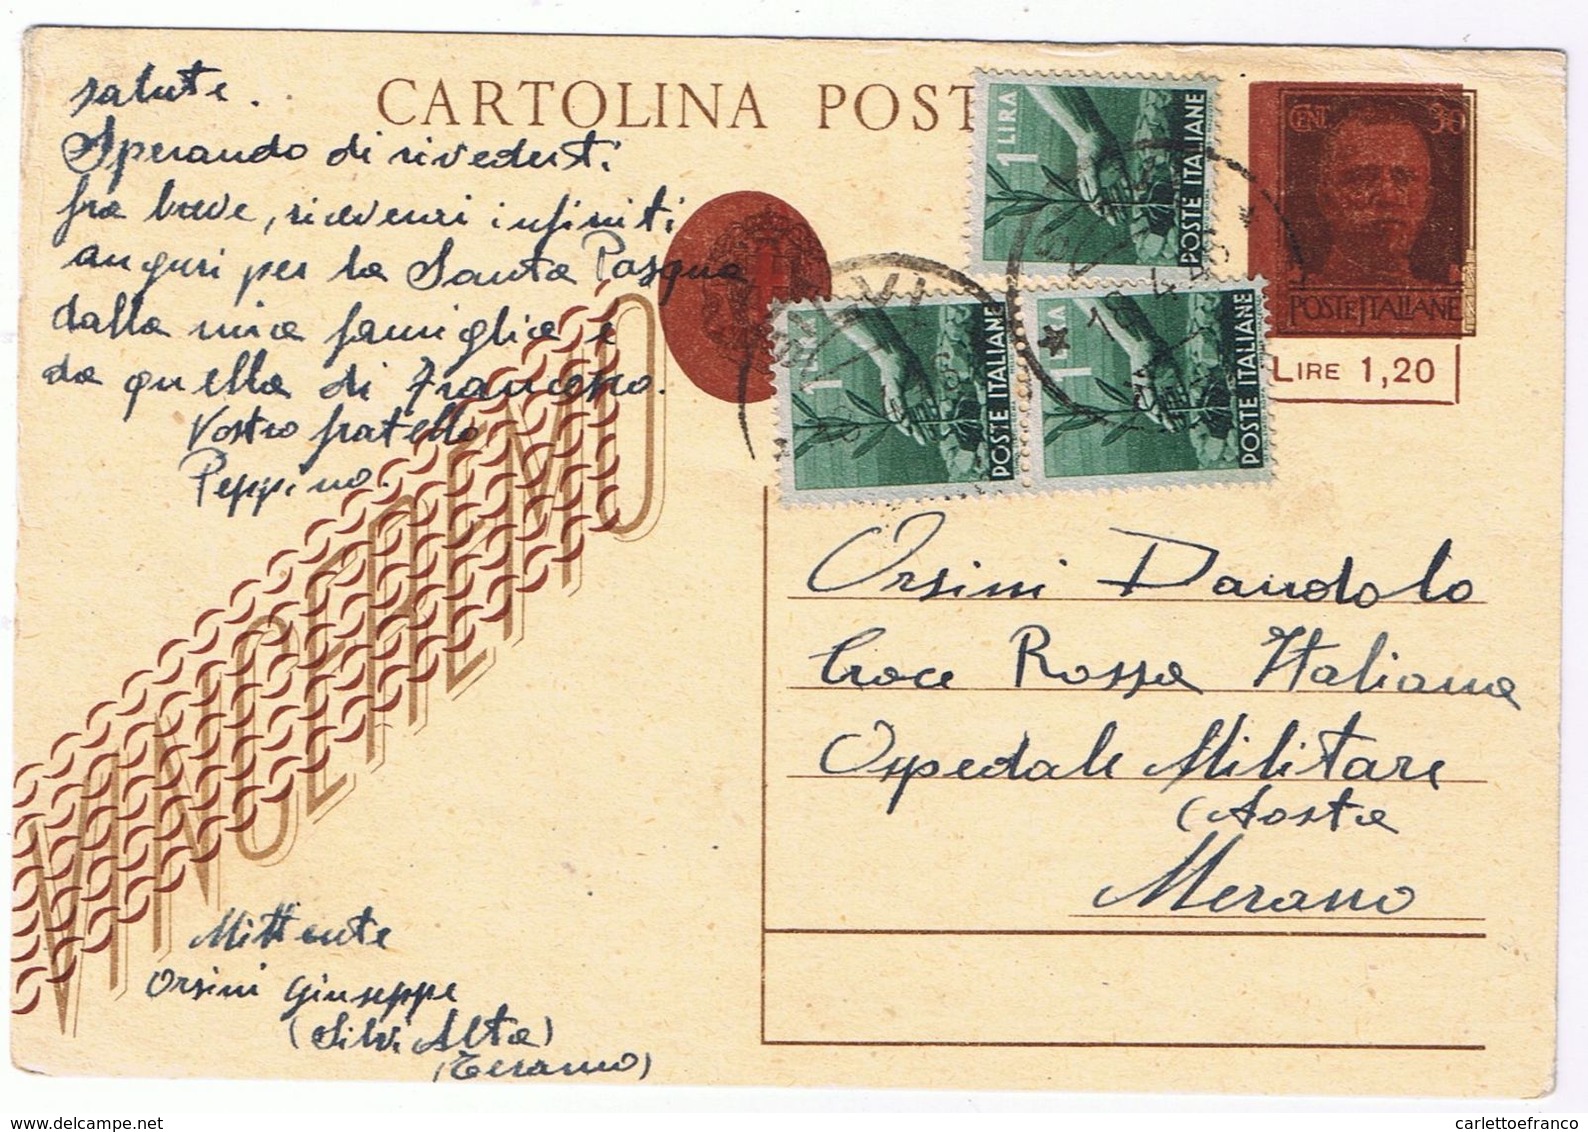 CARTOLINA POST
salute.
Sperando di rivederti
fra breve, ricevenri infiniti
auguri per la Santa Pasqua
dalla mia famiglia e
da quella di Francesco.
Vostro fratello
Peppino.
VINCEREMO
Mittente
Orsini Giuseppe
(Silvi Alta)
(Teramo)
1 LIRA
POSTE ITALIANE
1 LIRA
POSTE ITALIANE
1 LIRA
POSTE ITALIANE
CENT 30
POSTE ITALIANE
LIRE 1,20
Orsini Dandolo
Croce Rossa Italiana
Ospedale Militare
(Aosta
Merano
carlettoefranco